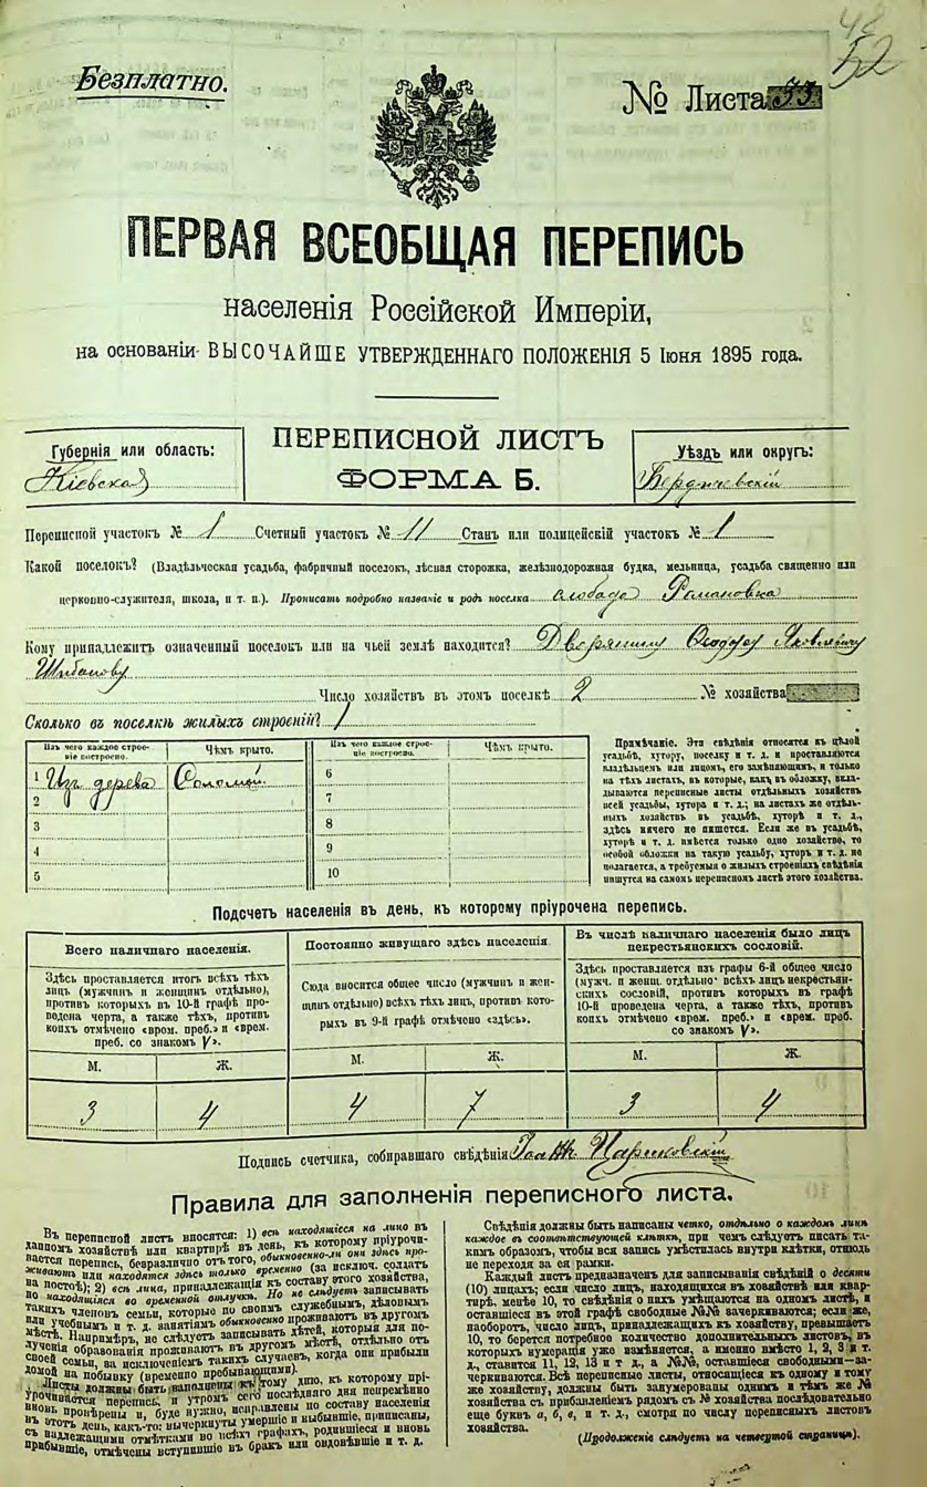 48
52
Безплатно.
№ Листа 33
ПЕРВАЯ ВСЕОБЩАЯ ПЕРЕПИСЬ
населенія Россійской Имперіи,
на основаніи ВЫСОЧАЙШЕ УТВЕРЖДЕННАГО ПОЛОЖЕНІЯ 5 Іюня 1895 года.
Губернія или область:
Кіевская
ПЕРЕПИСНОЙ ЛИСТЪ
ФОРМА Б.
Уѣздъ или округъ:
Бердичевскій
Переписной участокъ № 1 Счетный участокъ № 11 Станъ или полицейскій участокъ № 1
Какой поселокъ? (Владѣльческая усадьба, фабричный поселокъ, лѣсная сторожка, желѣзнодорожная будка, мельница, усадьба священно или
церковно-служителя, школа, и т. п.). Прописать подробно названіе и родъ поселка слобода Романовка
Кому принадлежитъ означенный поселокъ или на чьей землѣ находится? Дворянину Яковлевичу
Число хозяйствъ въ этомъ поселкѣ 2 № хозяйства
Сколько въ поселкѣ жилыхъ строеній? 1
Изъ чего каждое строе-
ніе построено.
Чѣмъ крыто.
Изъ чего каждое строе-
ніе построено.
Чѣмъ крыто.
1 Изъ дерева Соломой
2
3
4
5
6
7
8
9
10
Примѣчаніе. Эти свѣдѣнія относятся къ цѣлой
усадьбѣ, хутору, поселку и т. д. и проставляются
владѣльцемъ или лицомъ, его замѣняющимъ, и только
на тѣхъ листахъ, въ которые, какъ въ обложку, вкла-
дываются переписные листы отдѣльныхъ хозяйствъ
всей усадьбы, хутора и т. д.; на листахъ же отдѣль-
ныхъ хозяйствъ въ усадьбѣ, хуторѣ и т. д.,
здѣсь ничего не пишется. Если же въ усадьбѣ,
хуторѣ и т. д. имѣется только одно хозяйство, то
особой обложки на такую усадьбу, хуторъ и т. д. не
полагается, а требуемыя о жилыхъ строеніяхъ свѣдѣнія
пишутся на самомъ переписномъ листѣ этого хозяйства.
Подсчетъ населенія въ день, къ которому пріурочена перепись.
Всего наличнаго населенія.
Здѣсь проставляется итогъ всѣхъ тѣхъ
лицъ (мужчинъ и женщинъ отдѣльно),
противъ которыхъ въ 10-й графѣ про-
ведена черта, а также тѣхъ, противъ
коихъ отмѣчено «врем. преб.» и «врем.
преб. со знакомъ V».
М. Ж.
3 4
Постоянно живущаго здѣсь населенія
Сюда вносится общее число (мужчинъ и жен-
щинъ отдѣльно) всѣхъ тѣхъ лицъ, противъ кото-
рыхъ въ 9-й графѣ отмѣчено «здѣсь».
М. Ж.
4 7
Въ числѣ наличнаго населенія было лицъ
некрестьянскихъ сословій.
Здѣсь проставляется изъ графы 6-й общее число
(мужч. и женщ. отдѣльно) всѣхъ лицъ некрестьян-
скихъ сословій, противъ которыхъ въ графѣ
10-й проведена черта, а также тѣхъ, противъ
коихъ отмѣчено «врем. преб.» и «врем. преб.
со знакомъ V».
М. Ж.
3 4
Подпись счетчика, собиравшаго свѣдѣнія
Правила для заполненія переписного листа.
Въ переписной листъ вносятся: 1) всѣ находящіеся на лицо въ
данномъ хозяйствѣ или квартирѣ въ день, къ которому пріурочи-
вается перепись, безразлично отъ того, обыкновенно-ли они здѣсь про-
живаютъ или находятся здѣсь только временно (за исключ. солдатъ
на постоѣ); 2) всѣ лица, принадлежащія къ составу этого хозяйства,
но находящіяся во временной отлучкѣ. Но не слѣдуетъ записывать
такихъ членовъ семьи, которые по своимъ служебнымъ, дѣловымъ
или учебнымъ и т. д. занятіямъ обыкновенно проживаютъ въ другомъ
мѣстѣ. Напримѣръ, не слѣдуетъ записывать дѣтей, которыя для по-
лученія образованія проживаютъ въ другомъ мѣстѣ, отдѣльно отъ
своей семьи, за исключеніемъ такихъ случаевъ, когда они прибыли
домой на побывку (временно пребывающими).
Листы должны быть заполнены къ тому дню, къ которому прі-
урочивается перепись, и утромъ сего послѣдняго дня непремѣнно
вновь провѣрены и, буде нужно, исправлены по составу населенія
въ этотъ день, какъ-то: вычеркнуты умершіе и выбывшіе, приписаны,
съ надлежащими отмѣтками во всѣхъ графахъ, родившіеся и вновь
прибывшіе, отмѣчены вступившіе въ бракъ или овдовѣвшіе и т. д.
Свѣдѣнія должны быть написаны четко, отдѣльно о каждомъ лицѣ
каждое въ соотвѣтствующей клѣткѣ, при чемъ слѣдуетъ писать та-
кимъ образомъ, чтобы вся запись умѣстилась внутри клѣтки, отнюдь
не переходя за ея рамки.
Каждый листъ предназначенъ для записыванія свѣдѣній о десяти
(10) лицахъ; если число лицъ, находящихся въ хозяйствѣ или квар-
тирѣ, менѣе 10, то свѣдѣнія о нихъ умѣщаются на одномъ листѣ, и
оставшіеся въ этой графѣ свободные №№ зачеркиваются; если же,
наоборотъ, число лицъ, принадлежащихъ къ хозяйству, превышаетъ
10, то берется потребное количество дополнительныхъ листовъ, въ
которыхъ нумерація уже измѣняется, а именно вмѣсто 1, 2, 3 и т.
д., ставится 11, 12, 13 и т д., а №№, оставшіеся свободными—за-
черкиваются. Всѣ переписные листы, относящіеся къ одному и тому
же хозяйству, должны быть занумерованы однимъ и тѣмъ же №
хозяйства съ прибавленіемъ рядомъ съ № хозяйства послѣдовательно
еще буквъ а, б, в, и т. д., смотря по числу переписныхъ листовъ
хозяйства.
(Продолженіе слѣдуетъ на четвертой страницѣ).